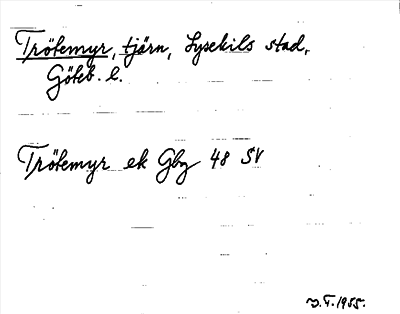 Trötemyr, tjärn, Lysekils stad,
Göteb. l.
Trötemyr ek Gbg 48 SV
J.F. 1955.